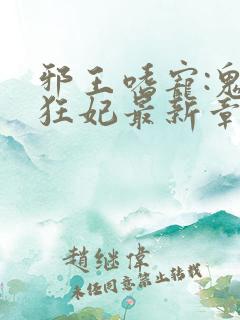 邪王嗜宠:鬼
狂妃最新章
赵继伟
未经同意禁止转载